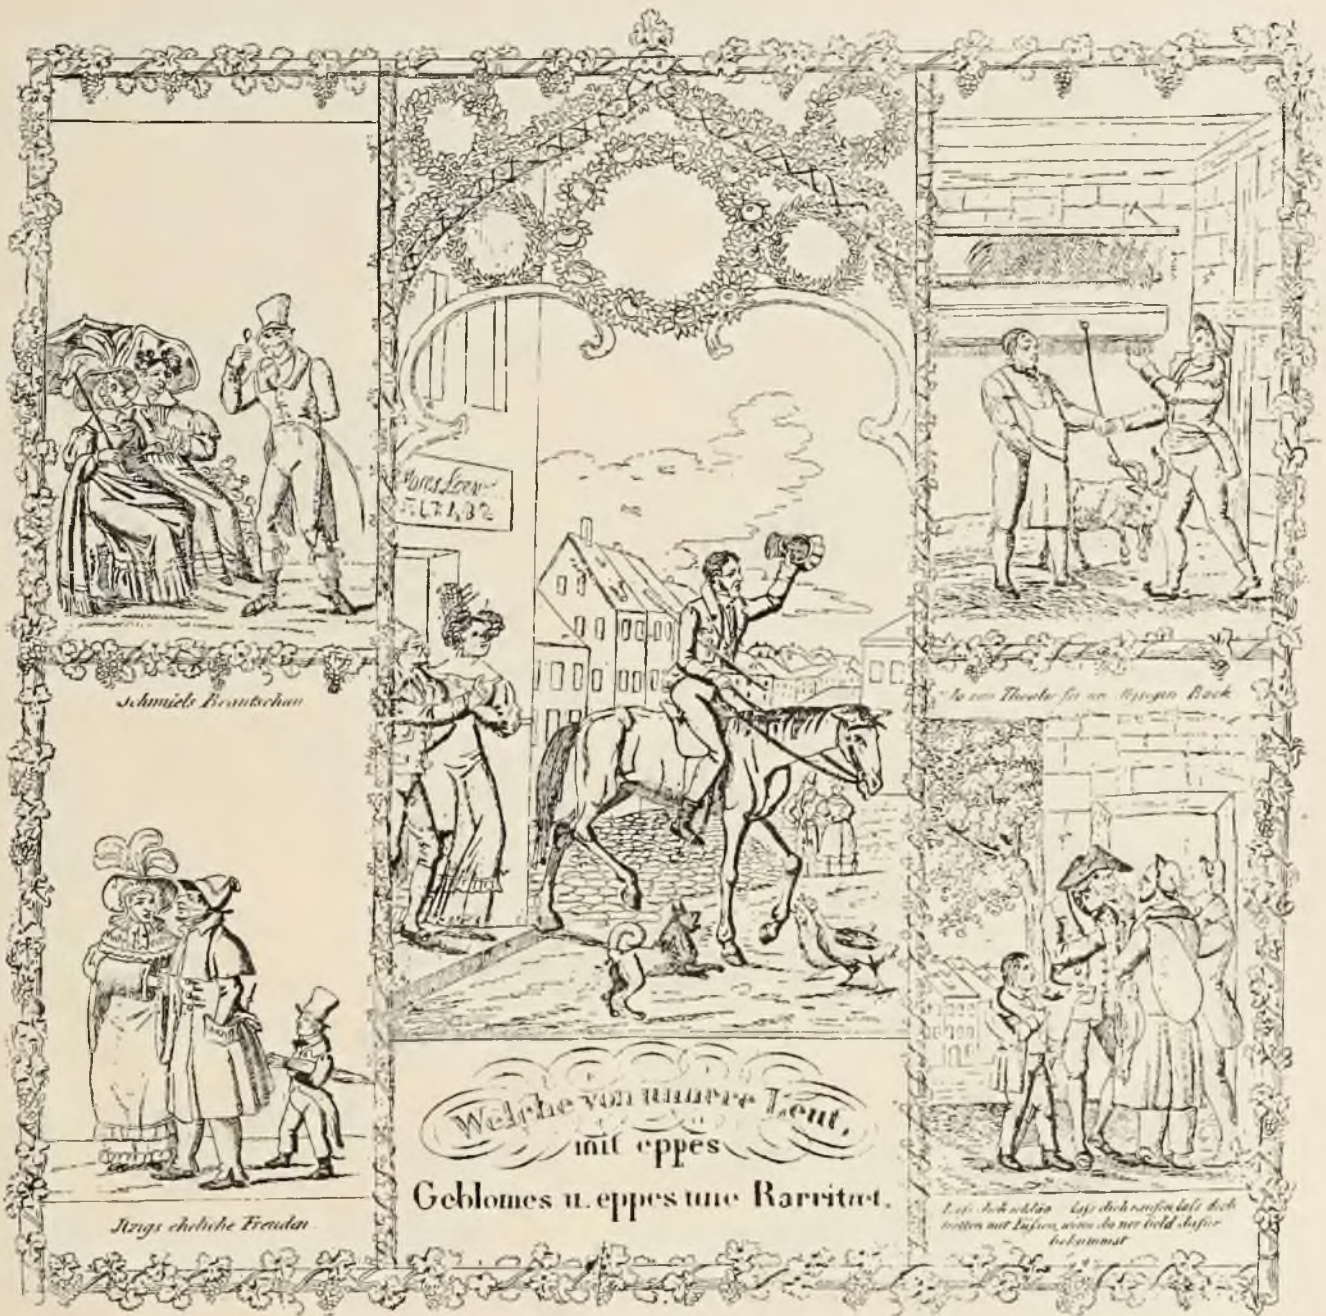 Schmiels Brautschau
Itzigs eheliche Freuden
Moses Loew
Welche von unnere Leut,
mit eppes
Geblomes u. eppes une Rarritæt.
Theater für
Bock
Laß dich schlän Laß dich raufen laß dich
tretten mit Füßen, wenn du ner Geld dafür
bekummst